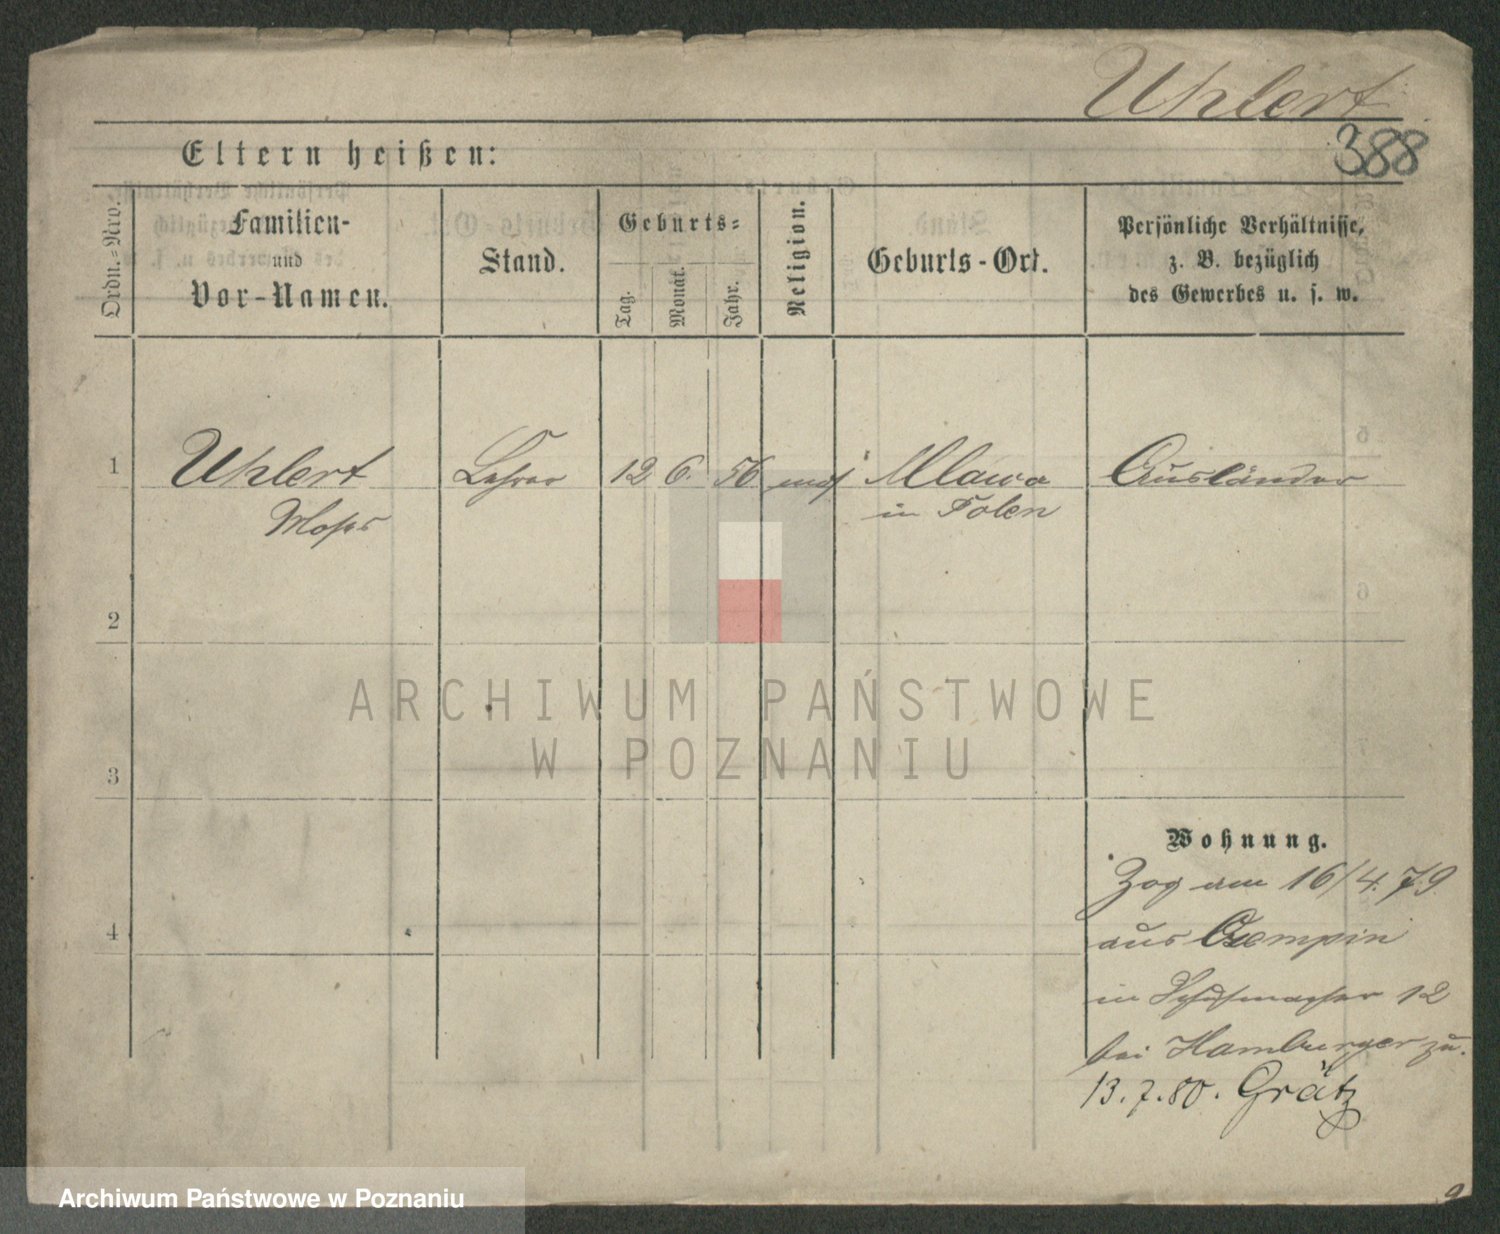 Uhlert
388
Eltern heißen:
Ordn.-Nro.
Familien-
und
Vor-Namen.
Stand.
Geburts-
Tag.
Monat.
Jahr.
Religion.
Geburts-Ort.
Persönliche Verhältnisse,
z. B. bezüglich
des Gewerbes u. s. w.
1 Uhlert Lehrer 12 6. 56 mos Mlawa Ausländer
Moses in Polen
2
3
4
Wohnung.
Zog am 16/4. 79.
aus Czempin
in Schuhmacher 12
bei Hamburger zu.
13.7.80. Grätz
ARCHIWUM PAŃSTWOWE
W POZNANIU
Archiwum Państwowe w Poznaniu